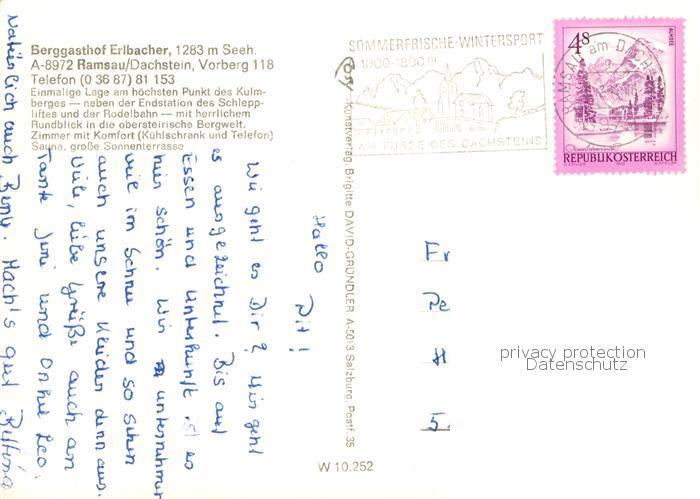 Berggasthof Erlbacher, 1283 m Seeh.
A-8972 Ramsau/Dachstein, Vorberg 118
Telefon (0 36 87) 81 153
Einmalige Lage am höchsten Punkt des Kulm-
berges — neben der Endstation des Schlepp-
liftes und der Rodelbahn — mit herrlichem
Rundblick in die obersteirische Bergwelt.
Zimmer mit Komfort (Kühlschrank und Telefon)
Sauna, große Sonnenterrasse
SOMMERFRISCHE-WINTERSPORT
1000-1800 m
AM FUSSE DES DACHSTEINS
RAMSAU am DACH
4S
ALMSEE
REPUBLIK ÖSTERREICH
Kunstverlag Brigitte DAVID-GRÜNDLER A-5013 Salzburg, Postf. 35
W 10.252
Hallo
Pit!
Wie geht es Dir? Mir geht
es ausgezeichnet. Bis auf
Essen und Unterkunft ist es
hier schön. Wir unternehmen
viel im Schnee und so sehen
auch unsere Kleider dann aus.
Viele, liebe Grüße auch an
Tante Juni und Onkel Leo.
Natürlich auch Mach's gut Bettina
Fr
Pe
H
5.
privacy protection
Datenschutz